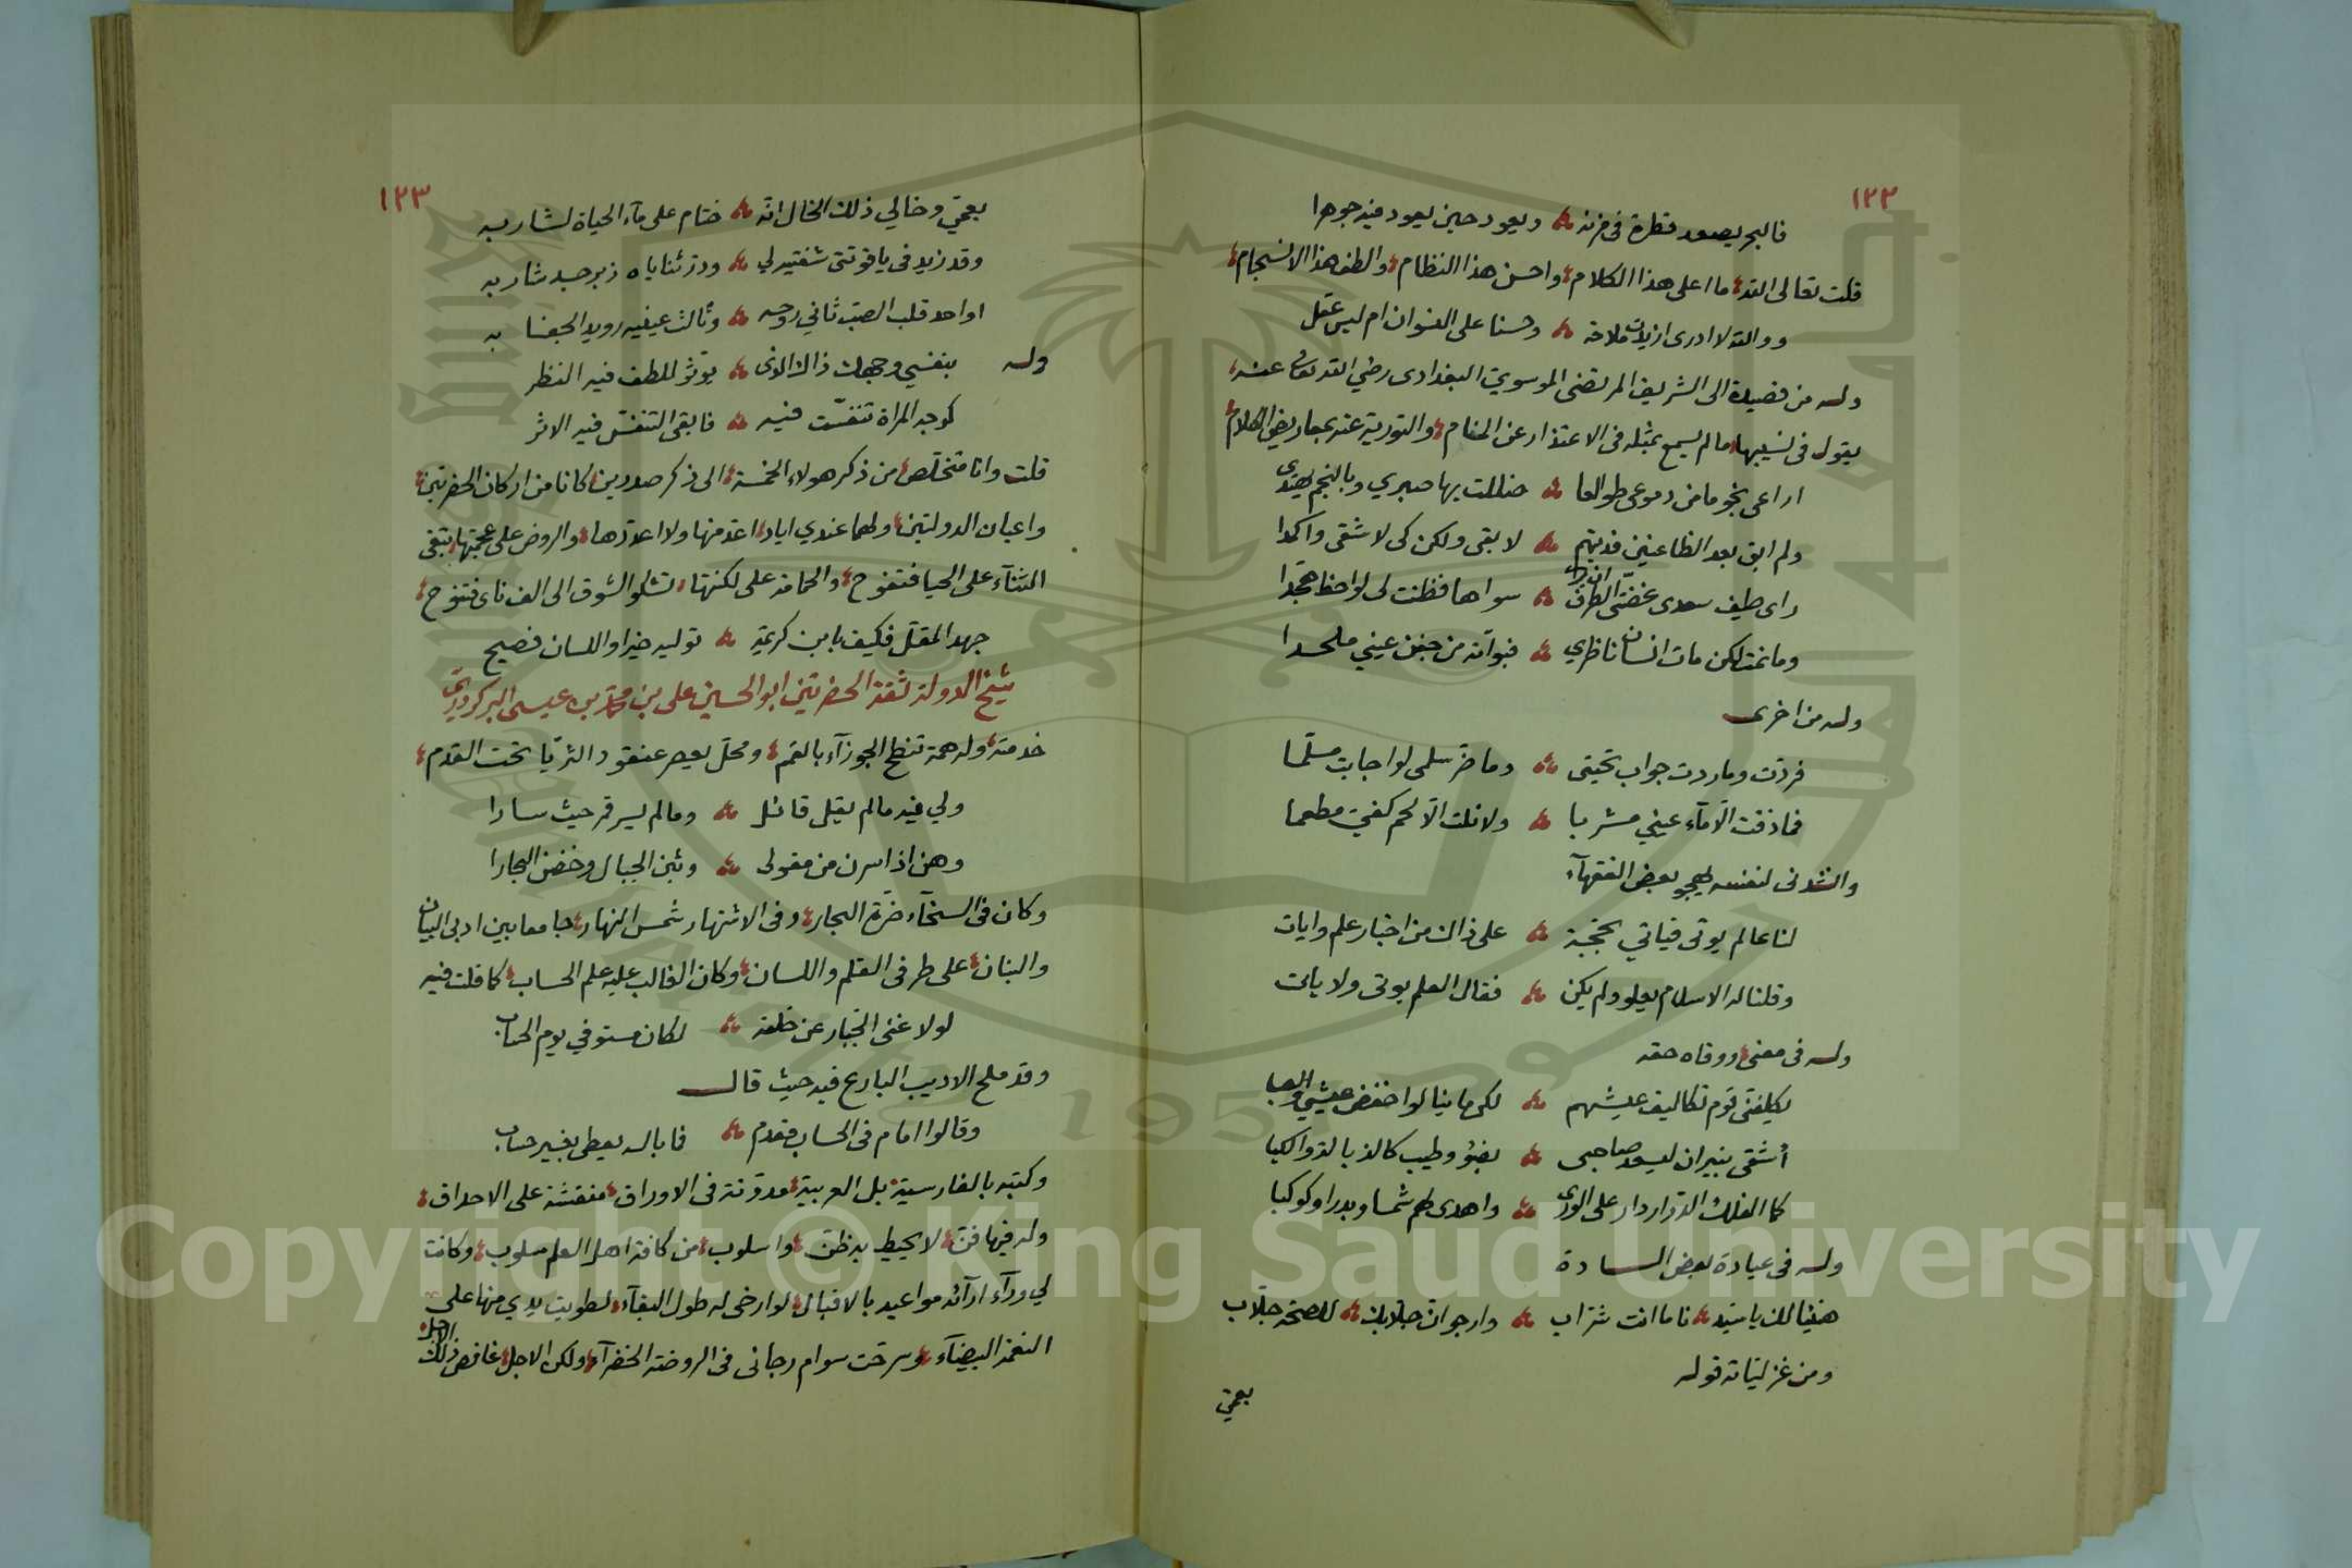 ١٢٢
فالبحر يصعد قطرة فى مزنه ويعود حين يعود فيه جوهرا
قلت تعالى الله ما اعلى هذا الكلام واحسن هذا النظام والطف هذا الانسجام
ووالله لا ادرى ازيدت ملاحة وحسنا على النسوان ام ليس عقل
وله من قصيدة الى الشريف المرتضى الموسوي البغدادى رضي الله تعالى عنه
يقول فى نسيبها ما لم يسمع بمثله فى الاعتذار عن المنام والتورية عنه بمعاريض الكلام
اراعى نجوما من دموعى طوالعا ضللت بها صبري وبالنجم يهتدى
ولم ابق بعد الظاعنين فديتهم لابقى ولكن كى لاشقى واكمدا
راى طيف سعدى غضتى الطرف ان يرى سواها فظنت لى لواحظ هجدا
وما نمت لكن مات انسان ناظري فبوأته من جفن عيني ملحدا
وله من اخرى
فردت وما ردت جواب تحيتى وما ضر سلمى لو اجابت مسلما
فما ذقت الا مآء عيني مشربا ولا نلت الا لحم كفي مطعما
وانشدنى لنفسه يهجو بعض الفقهآء
لنا عالم يوتى فياتي بحجة على ذاك من اخبار علم وايات
وقلنا له الاسلام يعلو ولم يكن فقال العلم يوتى ولا يات
وله فى معنى ووفاه حقه
يكلفنى قوم تكاليف عيشهم لكى ما ينالوا خفض عيشي والصبا
أشقى بنيران ليسعد صاحبى بضوء وطيب كالذبال والكبا
كما الفلك الدوار دار على الورى واهدى لهم شمسا وبدرا وكوكبا
وله فى عيادة بعض السادة
هنيئا لك يا سيدنا ما انت شراب وارجو ان جلابك للصحة جلاب
ومن غزلياته قوله
بعمي
١٢٣
بعمي وخالي ذلك الخال انه ختام على مآء الحياة لشاربه
وقد زيد فى ياقوتتى شفتيه لي ودر ثناياه زبرجد شاربه
اواحد قلب الصب ثاني روحه وثالث عينيه رويد الجفا به
وله بنفسي وجهك ذاك الذى يوثر للطف فيه النظر
كوجه المراة تنفست فيه فابقى التنفس فيه الاثر
قلت وانا متخلص من ذكر هولاء الخمسة الى ذكر صدرين كانا من اركان الحضرتين
واعيان الدولتين ولهما عندي اياد اعد منها ولا اعددها والروض على عجمتها تبقى
الثنآء على الحيا فتفوح والحمامة على لكنتها تشكو الشوق الى الف ناى فتنوح
جهد المقل فكيف بابن كريمة توليه خيرا واللسان فصيح
شيخ الدولة ثقة الحضرتين ابو الحسين على بن محمد بن عيسى البركردزي
خدمته وله همة تنطح الجوزآء بالقمم ومحل يعصر عنقود الثريا تحت القدم
ولي فيه ما لم يقل قائل وما لم يسر قمر حيث سارا
وهن اذا سرن من مقولى وثبن الجبال وخضن البحارا
وكان فى السخآء ضرة البحار وفى الاشتهار شمس النهار جامعا بين ادبى البيان
والبنان على طرفى القلم واللسان وكان الغالب عليه علم الحساب كما قلت فيه
لولا غنى الجبار عن خلقه لكان مستوفي يوم الحساب
وقد ملح الاديب البارع فيه حيث قال
وقالوا امام فى الحساب مقدم فما باله يعطى بغير حساب
وكتبه بالفارسية بل العربية مدونة فى الاوراق منقشة على الاحداق
وله فيها فن لا يحيط به ظن واسلوب من كافة اهل العلم مسلوب وكانت
لي ورآء ارآئه مواعيد بالاقبال لو ارخى له طول البقآء لطويت يدي منها على
النغمة البيضآء وسرحت سوام رجائى فى الروضة الخضرآء ولكن الاجل غافص ذلك الاجل
Copyright © King Saud University
1957